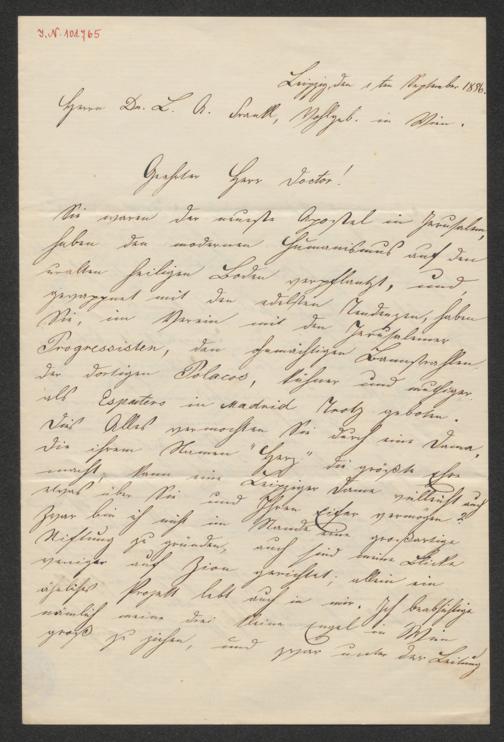 I.N. 101765
Leipzig, den 1ten September 1856.
Herrn Dr. L. A. Frankl, Wohlgeb. in Wien.
Geehrter Herr Doctor!
Sie waren der neueste Apostel in Jerusalem,
haben den modernen Humanismus auf den
uralten heiligen Boden verpflanzt, und,
gewappnet mit den edelsten Tendenzen, haben
Sie, im Verein mit den Jerusalemer
Progressisten, den ohnmächtigen Bannstrahlen
der dortigen Polacos, kühner und muthiger
als Espartero in Madrid Trotz geboten.
Dies Alles vermochten Sie durch eine Dame,
die ihrem Namen "Herz" die größte Ehre
macht, kann eine Leipziger Dame vielleicht auch
etwas über Sie und Ihren Eifer vermögen?
Zwar bin ich nicht im Stande eine großartige
Stiftung zu gründen, auch sind meine Blicke
weniger auf Zion gerichtet; allein ein
ähnliches Projekt lebt auch in mir. Ich beabsichtige
nämlich meine drei kleine Engel in Wien
groß zu ziehen, und zwar unter der Leitung